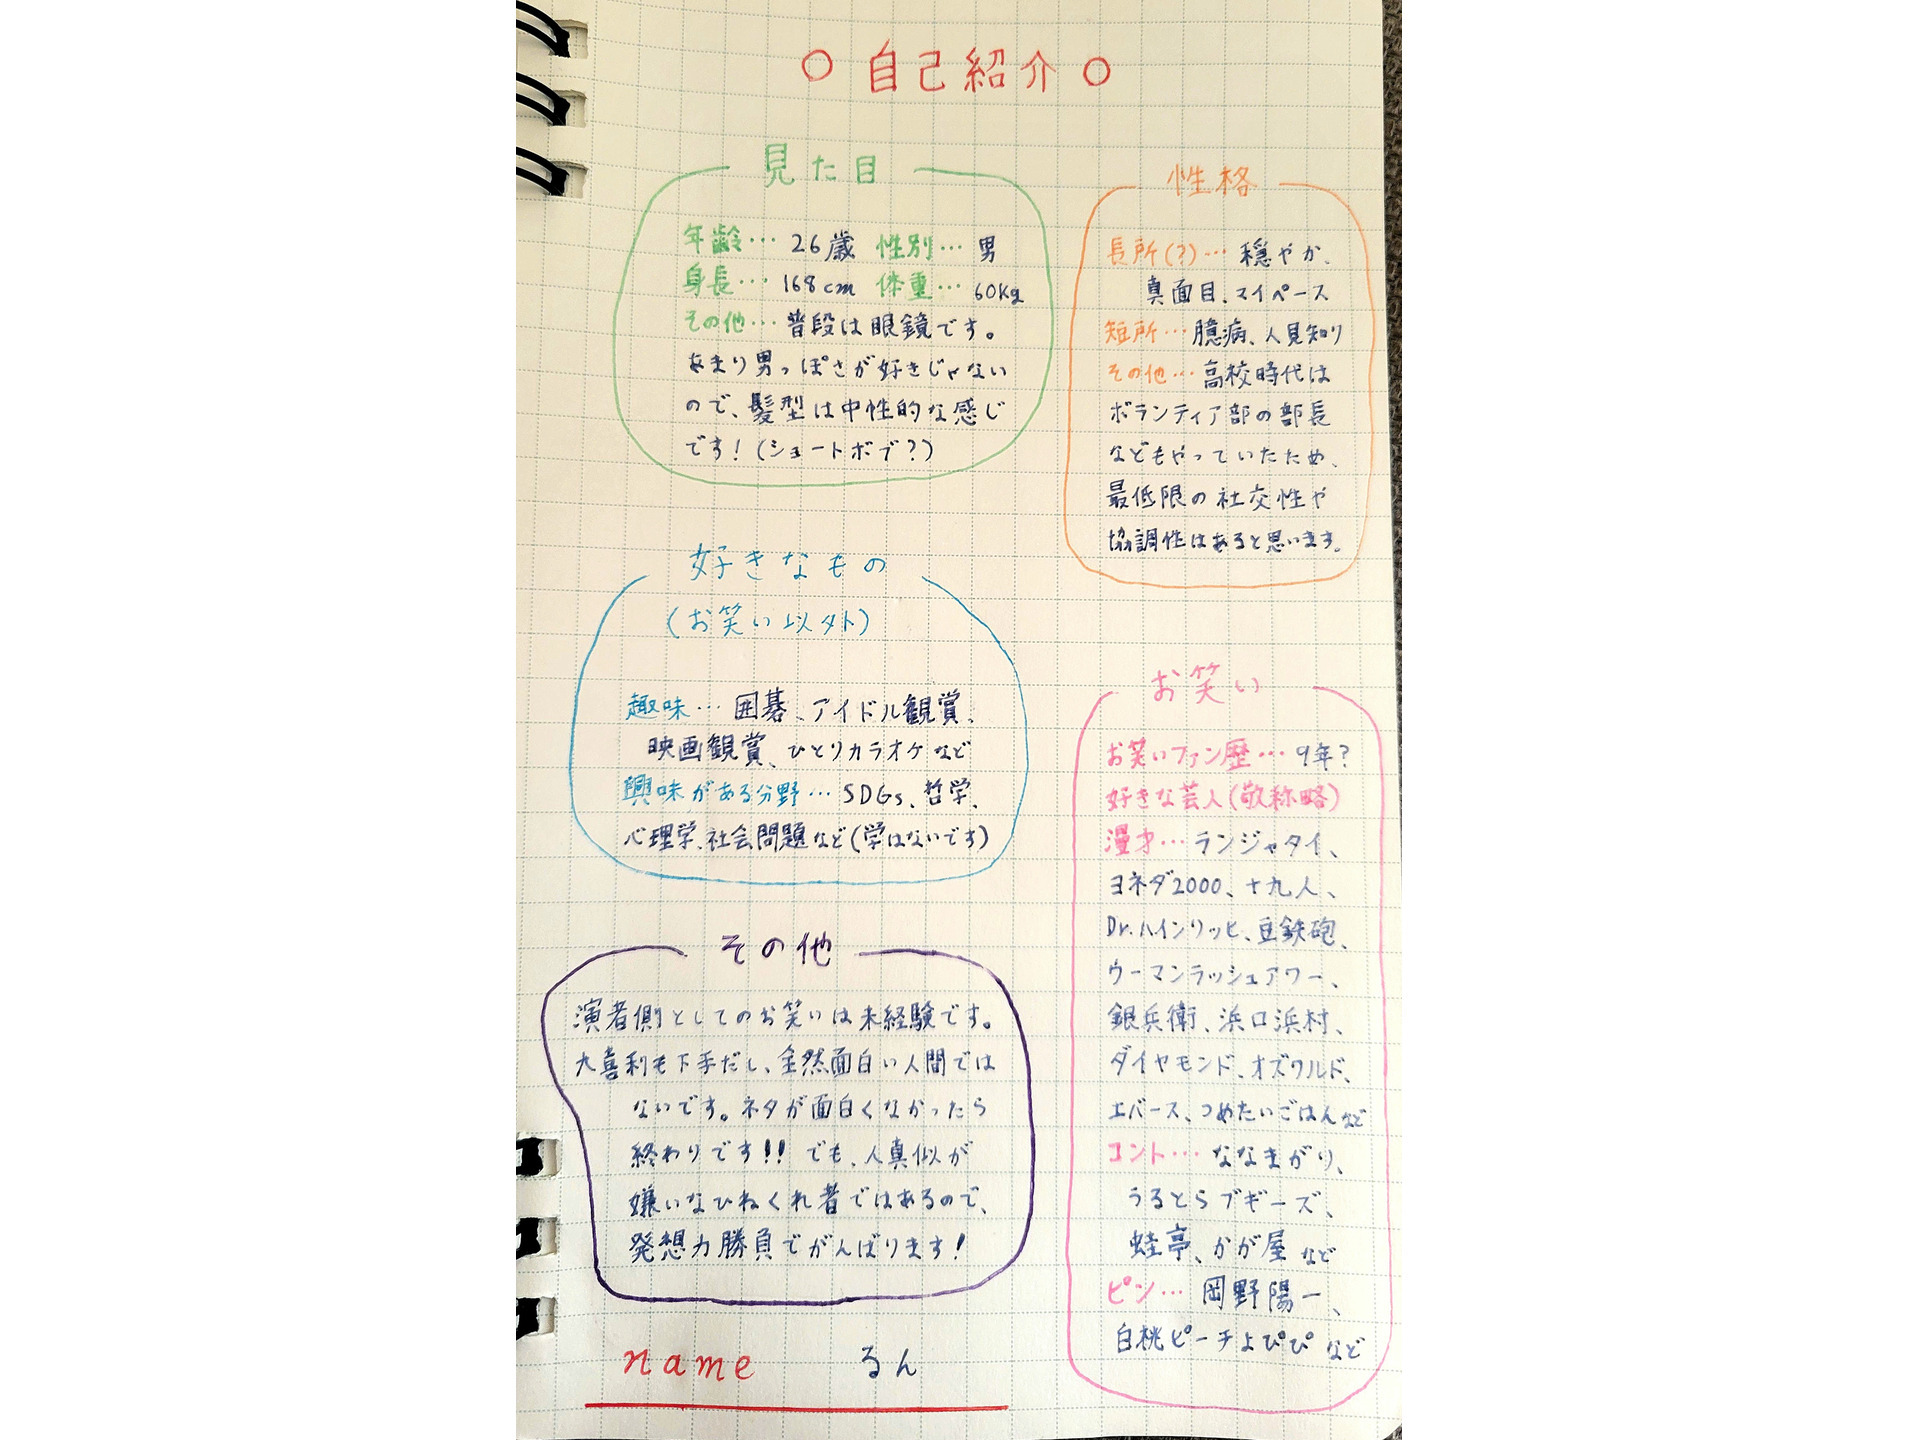 ○ 自己紹介 ○
見た目
年齢… 26歳 性別… 男
身長… 168cm 体重… 60Kg
その他… 普段は眼鏡です。
あまり男っぽさが好きじゃない
ので、髪型は中性的な感じ
です！(ショートボブ？)
性格
長所(？)… 穏やか、
真面目、マイペース
短所… 臆病、人見知り
その他… 高校時代は
ボランティア部の部長
などもやっていたため、
最低限の社交性や
協調性はあると思います。
好きなもの
(お笑い以外)
趣味… 囲碁、アイドル観賞、
映画観賞、ひとりカラオケなど
興味がある分野… SDGs、哲学、
心理学、社会問題など(学はないです)
お笑い
お笑いファン歴… 9年？
好きな芸人(敬称略)
漫才… ランジャタイ、
ヨネダ2000、十九人、
Dr.ハインリッヒ、豆鉄砲、
ウーマンラッシュアワー、
銀兵衛、浜口浜村、
ダイヤモンド、オズワルド、
エバース、つめたいごはんなど
コント… ななまがり、
うるとらブギーズ、
蛙亭、かが屋など
ピン… 岡野陽一、
白桃ピーチよぴぴなど
その他
演者側としてのお笑いは未経験です。
大喜利も下手だし、全然面白い人間では
ないです。ネタが面白くなかったら
終わりです!! でも、人真似が
嫌いなひねくれ者ではあるので、
発想力勝負でがんばります！
name るん